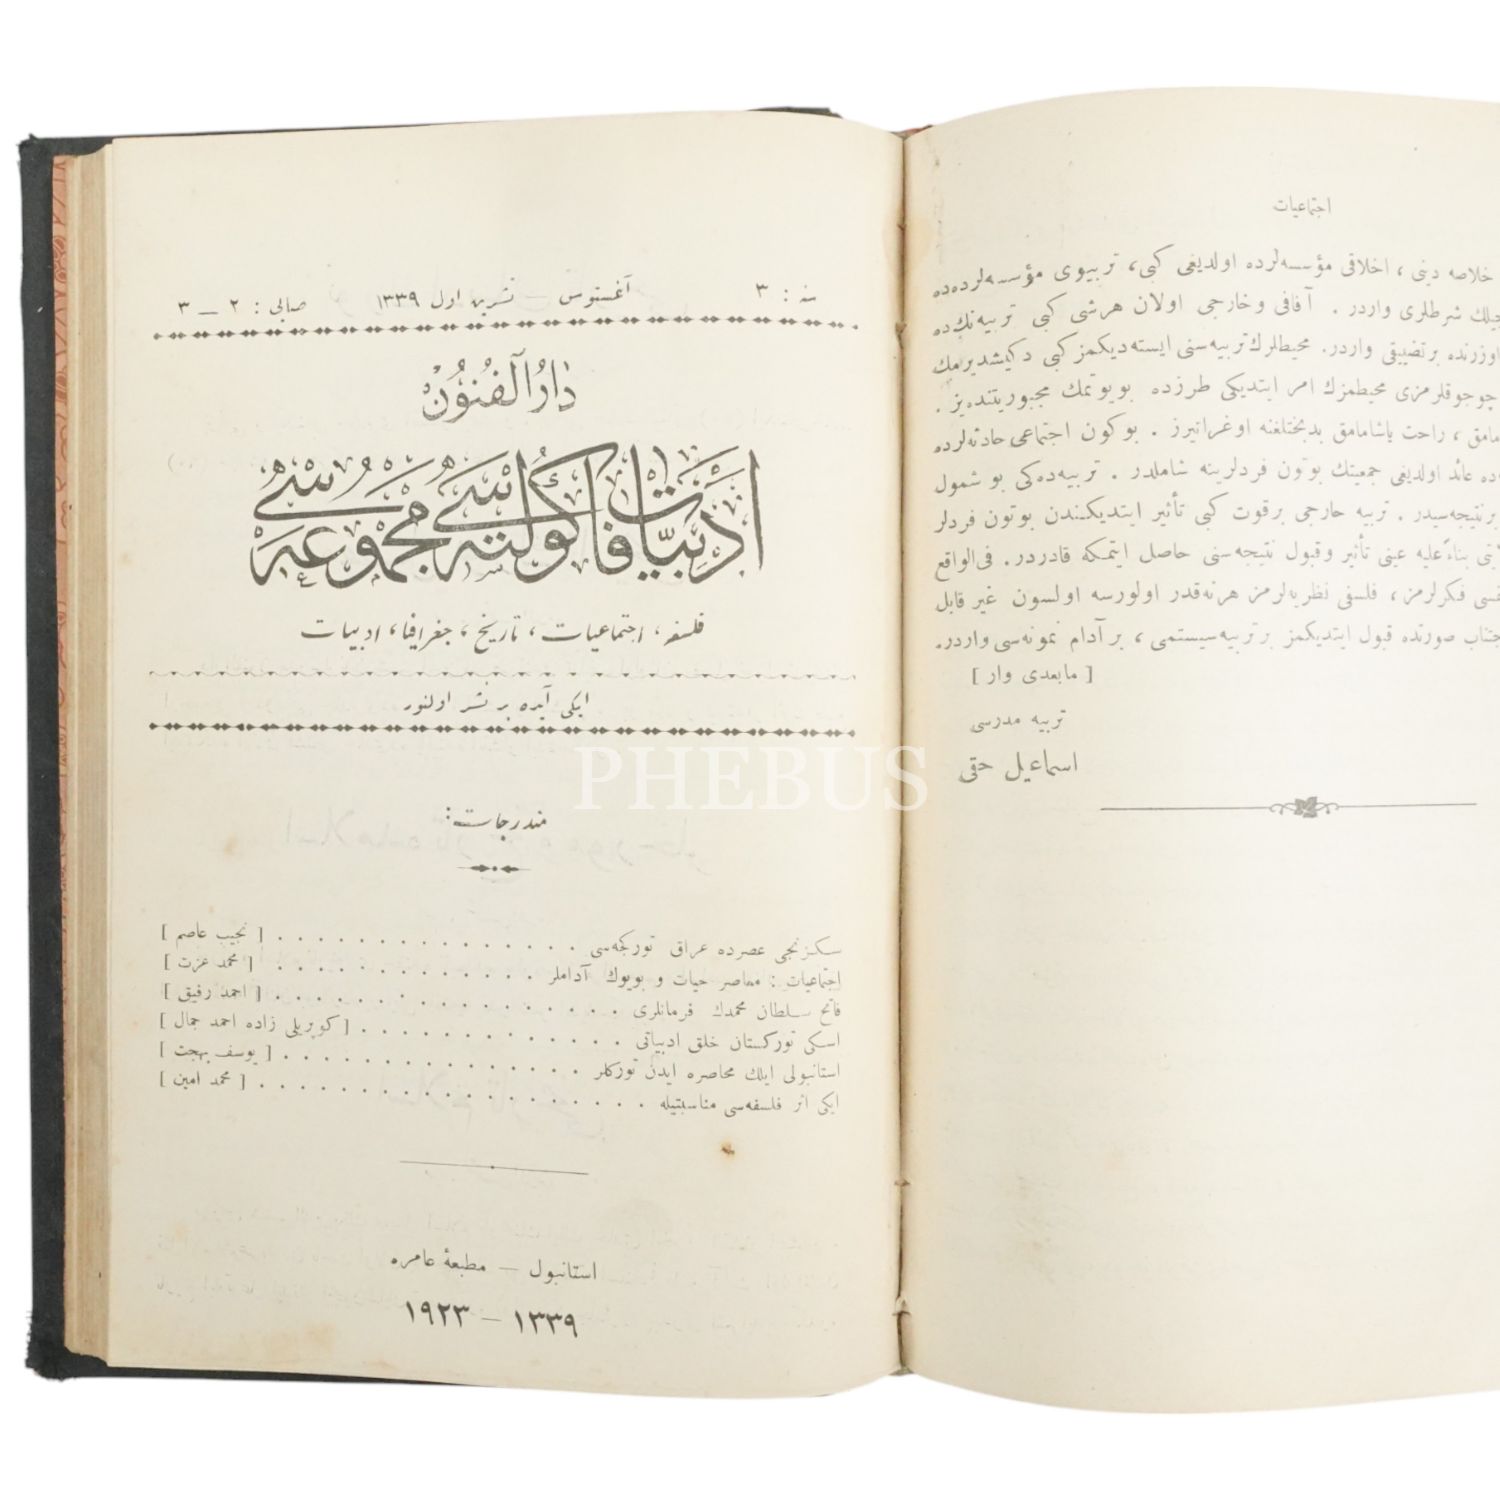 اجتماعیات
خلاصه دینی ، اخلاقی مؤسسه‌لرده اولدیغی کبی، تربیوی مؤسسه‌لرده‌ده
شرطلری واردر . آفاقی و خارجی اولان هرشی کبی تربیه‌نك‌ده
اوزرنده برتضییقی واردر. محیطلرك تربیه‌سنی ایسته‌دیکمز کبی دکیشدیرمك
چوجوقلرمزی محیطمزك امر ایتدیکی طرزده بویوتمك مجبوریتنده‌یز .
راحت یاشامامق بدبختلغنه اوغراتیرز . بوکون اجتماعی حادثه‌لرده
عائد اولدیغی جمعیتك بوتون فردلرینه شاملدر . تربیه‌ده‌کی بو شمول
برنتیجه‌سیدر . تربیه خارجی برقوت کبی تأثیر ایتدیکندن بوتون فردلر
بناءً علیه عینی تأثیر وقبول نتیجه‌سنی حاصل ایتمکه قادردر. فی‌الواقع
فکرلرمز ، فلسفی نظریه‌لرمز هرنه‌قدر اولورسه اولسون غیر قابل
صورتده قبول ایتدیکمز برتربیه‌سیستمی ، برآدام نمونه‌سی واردر.
[ مابعدی وار ]
تربیه مدرسی
اسماعیل حقی
سنه : ٣ آغستوس — تشرین اول ١٣٣٩ صایی : ٢ — ٣
دارالفنون
ادبیات فاکولته‌سی مجموعه‌سی
فلسفه ، اجتماعیات ، تاریخ ، جغرافیا ، ادبیات
ایکی آیده بر نشر اولنور
مندرجات :
سکزنجی عصرده عراق تورکجه‌سی . . . [ نجیب عاصم ]
اجتماعیات : معاصر حیات و بویوك آداملر . . . [ محمد عزت ]
فاتح سلطان محمدك فرمانلری . . . [ احمد رفیق ]
اسکی تورکستان خلق ادبیاتی . . . [ کوپریلی زاده احمد جمال ]
استانبولی ایلك محاصره ایدن تورکلر . . . [ یوسف بهجت ]
ایکی اثر فلسفه‌سی مناسبتیله . . . [ محمد امین ]
استانبول — مطبعهٔ عامره
١٣٣٩ — ١٩٢٣
PHEBUS